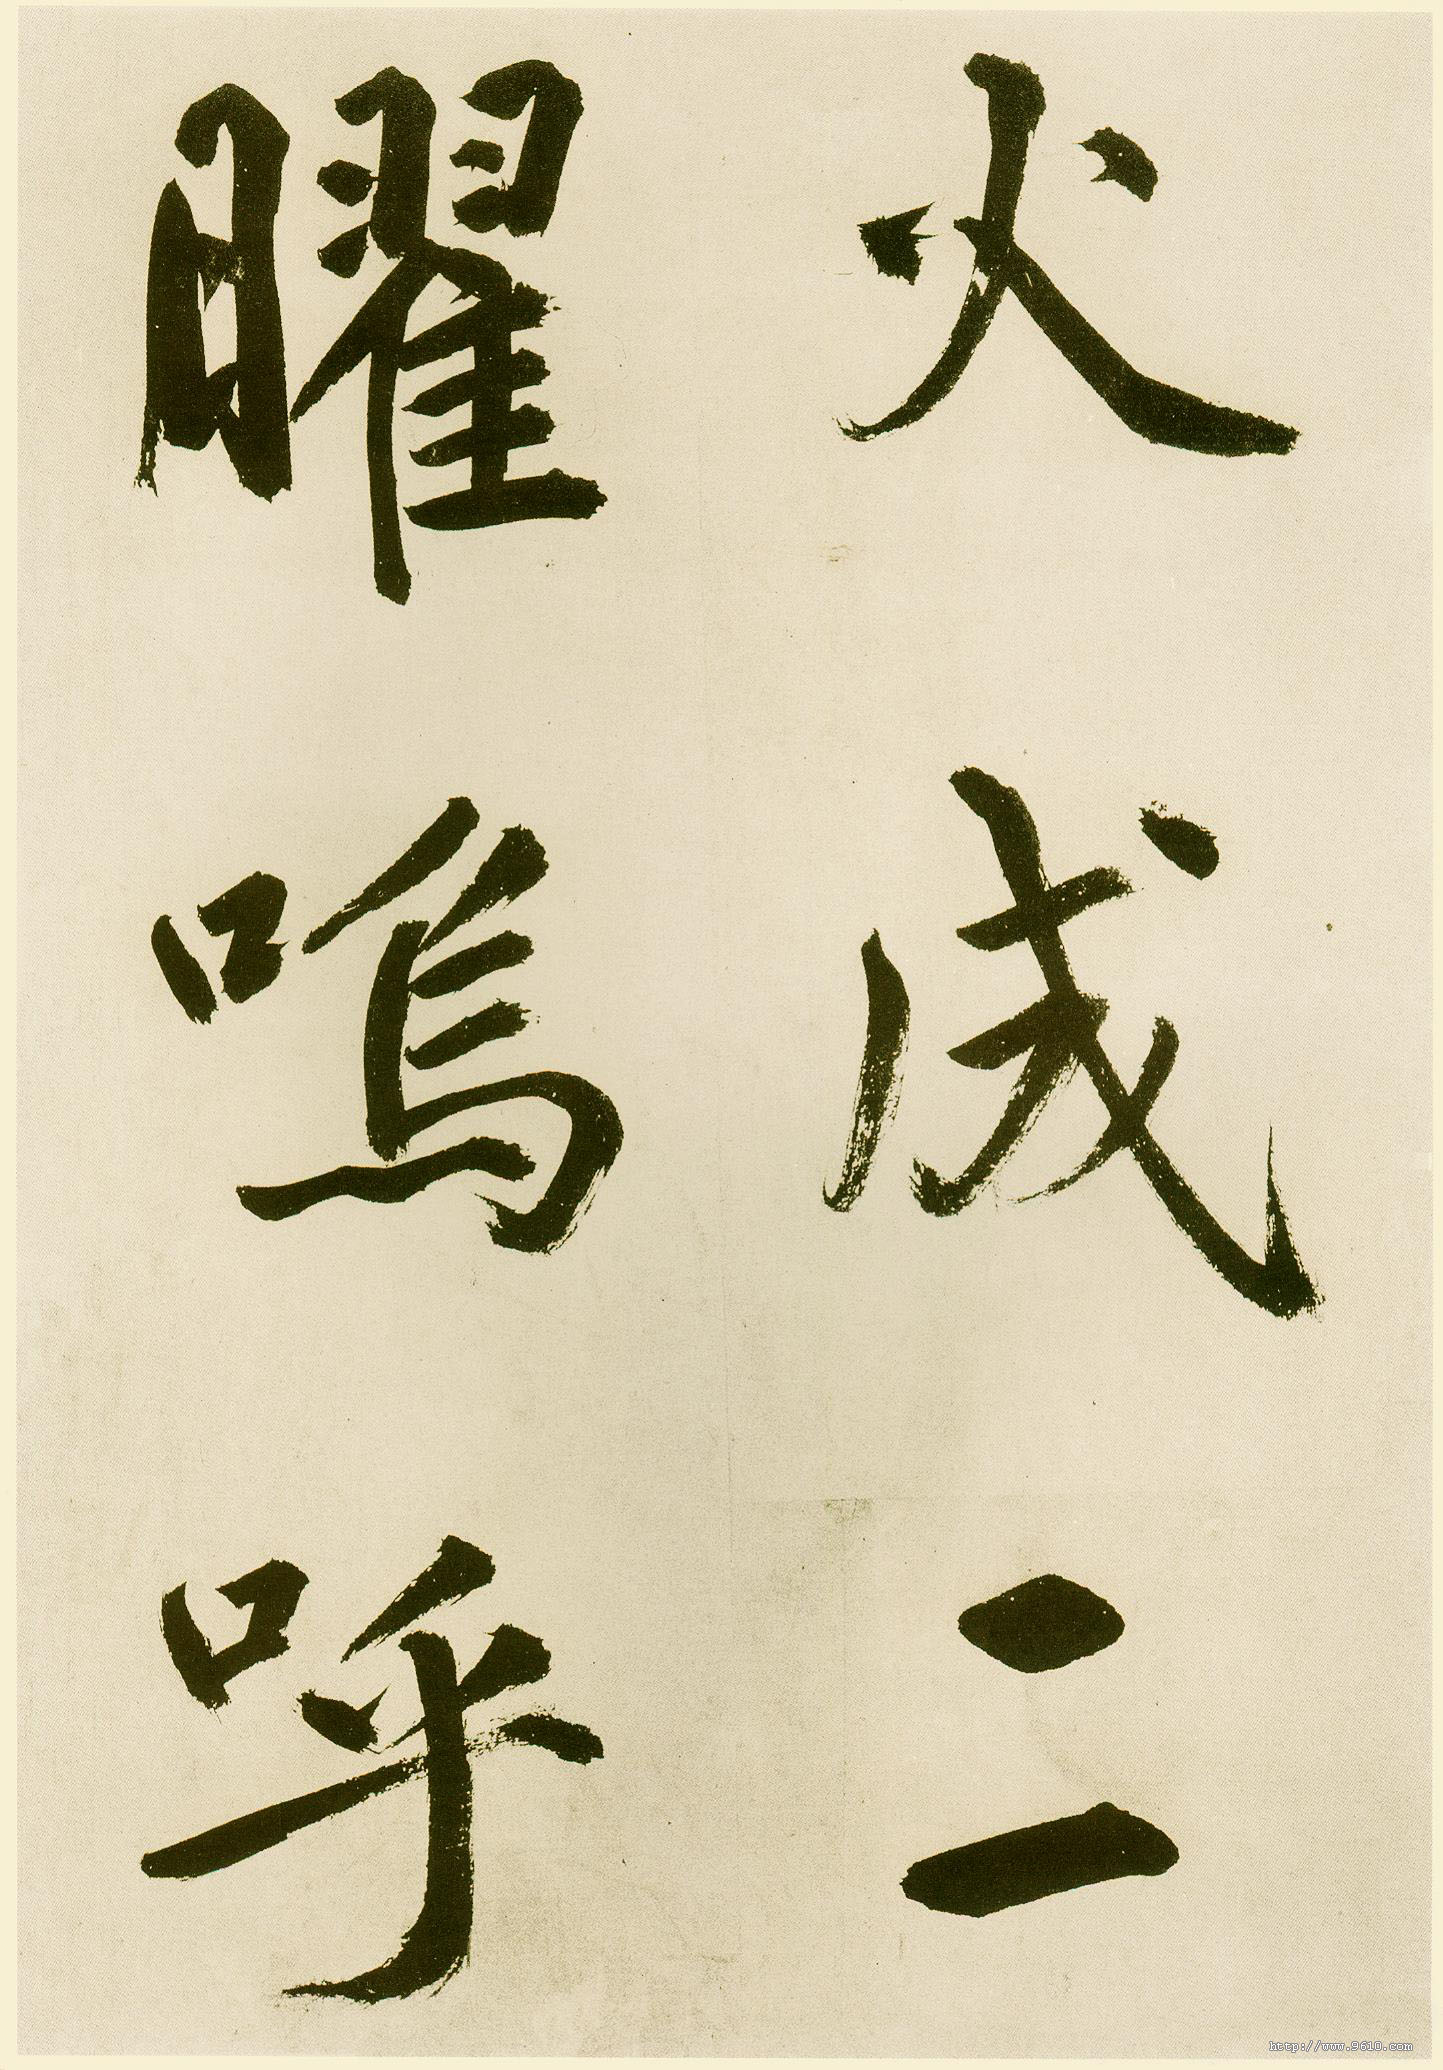 火成二
曜嗚呼
http://www.9610.com